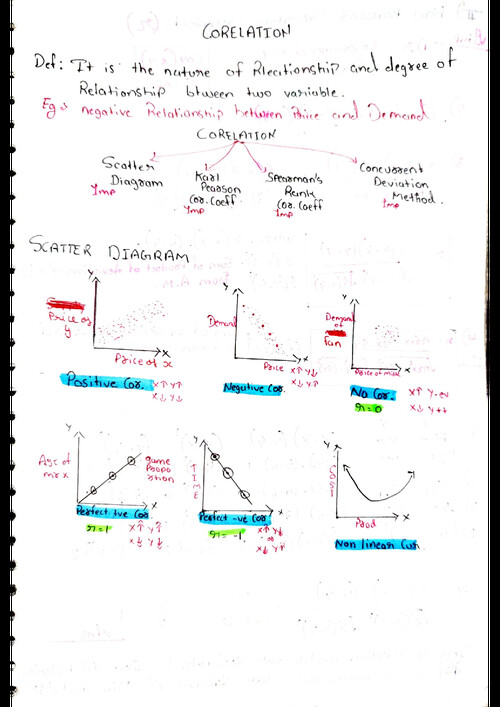 CORELATION
Def: It is the nature of Rleationship and degree of
Relationship btween two variable.
Eg: negative Relationship between Price and Demand
CORELATION
Scatter Diagram Imp
Karl Pearson Cor. Coeff Imp
Spearman's Rank Cor. Coeff Imp
Concurrent Deviation Method. Imp
SCATTER DIAGRAM
Y
Price of y
Price of x
X
Positive Cor.
X↑ Y↑
X↓ Y↓
Y
Demand
Price
X
Negative Cor.
X↑ Y↓
X↓ Y↑
Y
Demand of
Fan
X
No Cor.
r=0
X↑
X↓
Y
Age of
X
Same
Perfect +ve Cor
r=1
X↑ Y↑
X↓ Y↓
Y
TIME
X
Perfect -ve Cor
r=-1
X↑ Y↓
or
X↓ Y↑
COST
Prod
X
Non linear Cur